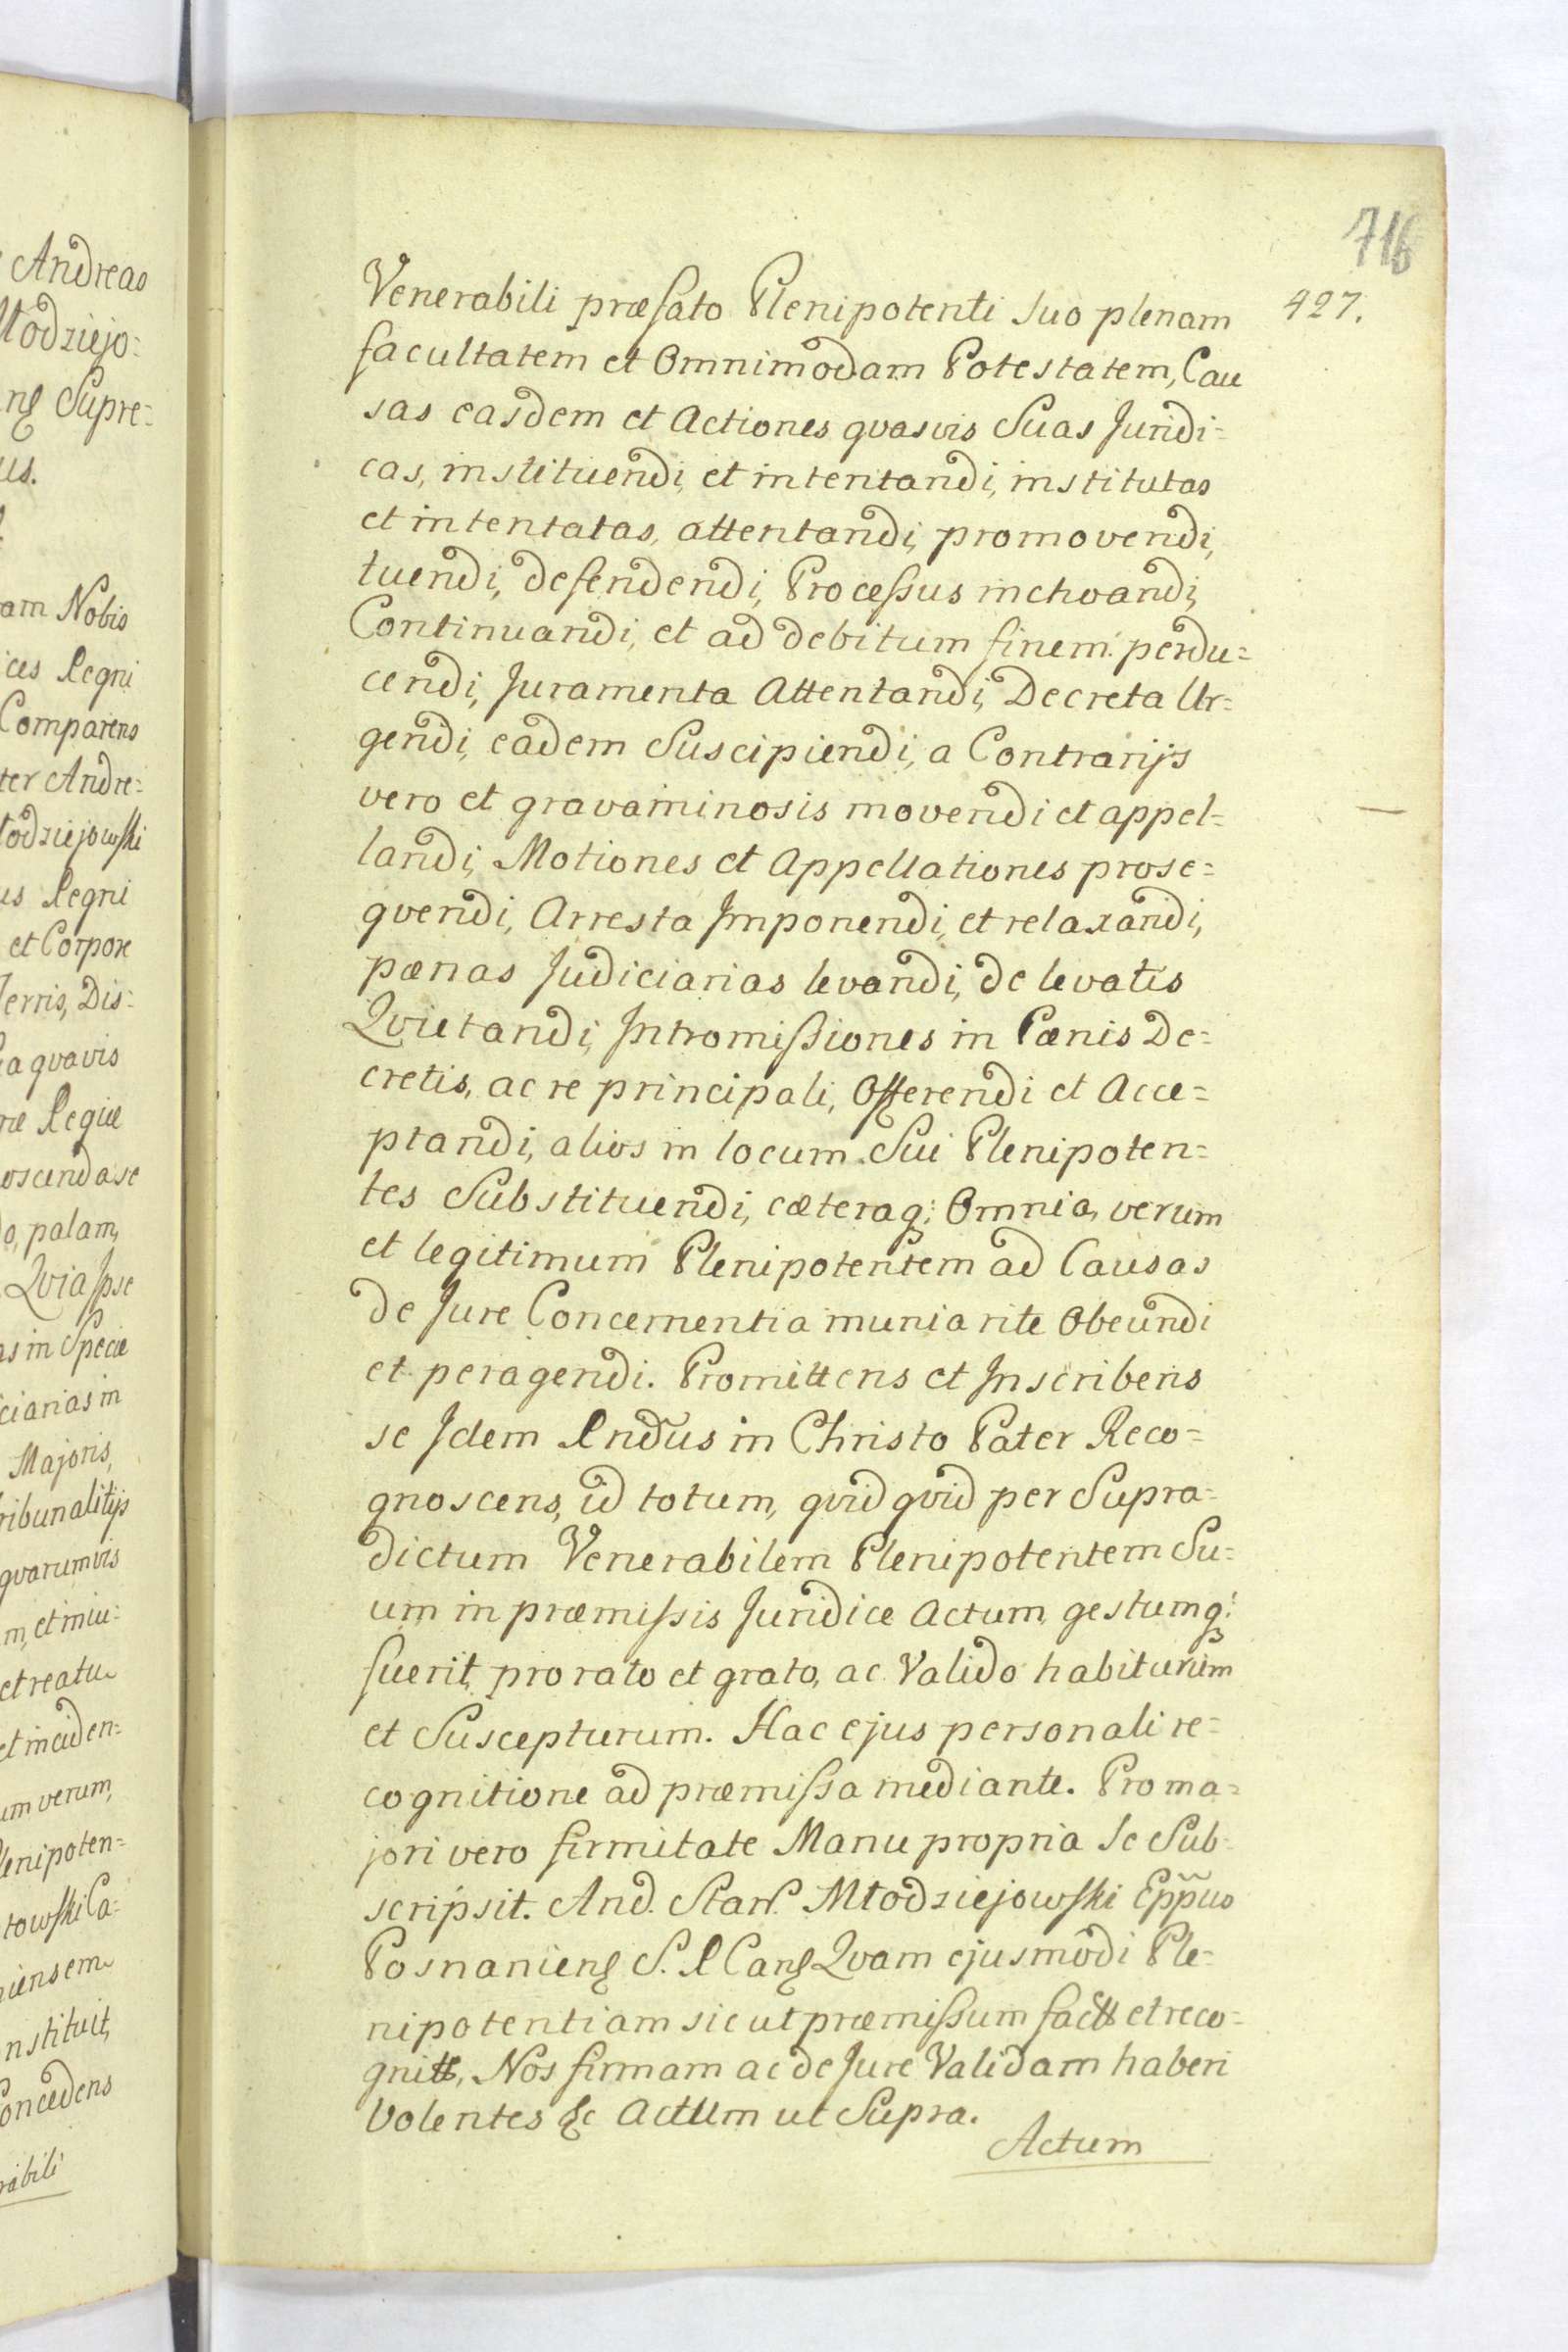 716
427.
Venerabili præfato Plenipotenti Suo plenam
facultatem et Omnimodam Potestatem, Cau
sas easdem et Actiones qvasvis Suas Juridi=
cas, instituendi, et intentandi, institutas
et intentatas, attentandi, promovendi,
tuendi, defendendi, Processus inchoandi,
Continuandi, et ad debitum finem perdu=
cendi, Juramenta Attentandi, Decreta Ur=
gendi, eadem Suscipiendi, a Contrarijs
vero et gravaminosis movendi et appel=
landi, Motiones et Appellationes prose=
qvendi, Arresta Imponendi, et relaxandi,
pænas Judiciarias levandi, de levatis
Qvietandi, Intromissiones in Pænis De=
cretis, ac re principali, Offerendi et Acce=
ptandi, alios in locum Sui Plenipoten=
tes Substituendi, cæteraq; Omnia, verum
et legitimum Plenipotentem ad Causas
de Jure Concernentia munia rite Obeundi
et peragendi. Promittens et Inscribens
se Idem Rndus in Christo Pater Reco=
gnoscens, id totum, qvidqvid per Supra=
dictum Venerabilem Plenipotentem Su=
um in præmissis Juridice Actum, gestumq;
fuerit, pro rato et grato, ac Valido habiturum
et Suscepturum. Hac ejus personali re=
cognitione ad præmissa mediante. Pro ma=
jori vero firmitate Manu propria Se Sub=
scripsit. And. Stan. Młodziejowski Eppus
Posnaniens S. R Canc Qvam ejusmodi Ple=
nipotentiam sic ut præmissum fact et reco=
gnitt, Nos firmam ac de Jure Validam haberi
Volentes &c Actum ut Supra.
Actum
Andreas
łodziejo=
Supre=
us.
am Nobis
ices Regni
Comparens
ter Andre=
łodziejowski
us Regni
et Corpore
Terris, Dis=
qvavis
ræ Regiæ
o, palam,
Qvia Ipse
as in Specie
ciarias in
Majoris,
ribunalitijs
qvarumvis
m, et inju=
et reatu
et inciden=
um verum,
lenipoten=
towski Ca=
iensem
nstituit,
Concedens
rabili